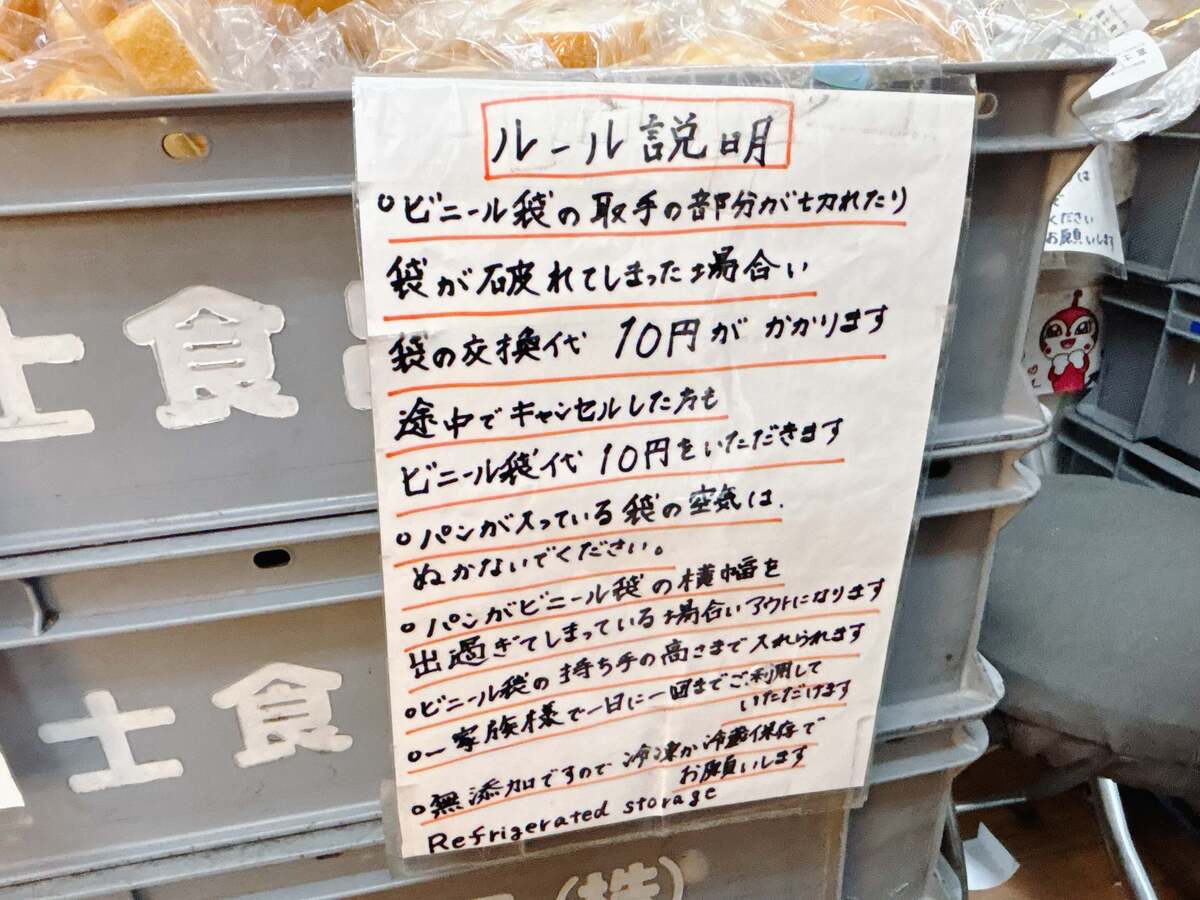 ルール説明
○ビニール袋の取手の部分が切れたり
袋が破れてしまった場合い
袋の交換代 10円がかかります
途中でキャンセルした方も
ビニール袋代 10円をいただきます
○パンが入っている袋の空気は、
ぬかないでください。
○パンがビニール袋の横幅を
出過ぎてしまっている場合いアウトになります
○ビニール袋の持ち手の高さまで入れられます
○一家族様で一日に一回までご利用して
いただけます
○無添加ですので冷凍か冷蔵保存で
お願いします
Refrigerated storage
士食
士食
(株)
は
ください
お願いします